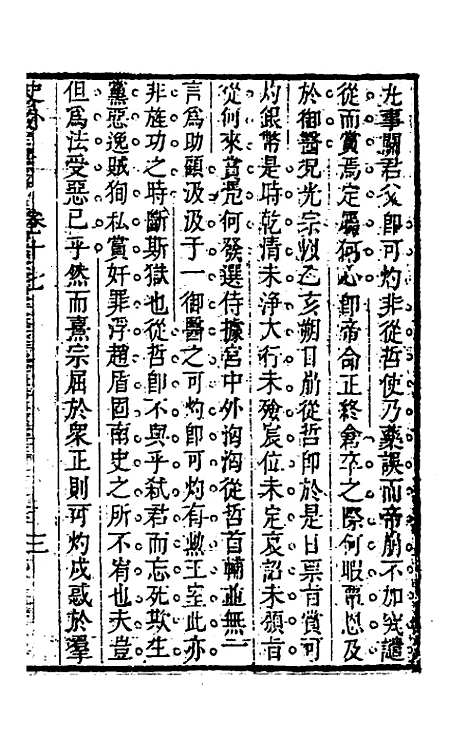 尤事關君父卽可灼非從哲使乃藥誤而帝崩不加究譴
從而賞焉定屬何心卽帝命正終倉卒之際何暇帶恩及
於御醫况光宗以乙亥朔日崩從哲卽於是日票旨賞可
灼銀幣是時乾清未淨大行未殮宸位未定哀詔未頒旨
從何來賞凭何發選侍據宮中外洶洶從哲首輔並無一
言爲助顧汲汲于一御醫之可灼卽可灼有勲王室此亦
非旌功之時斷斯獄也從哲卽不與乎弑君而忘死欺生
黨惡逸賊狥私賞奸罪浮趙盾固南史之所不宥也夫豈
但爲法受惡已乎然而熹宗屈於衆正則可灼戍惑於羣
卷十
三